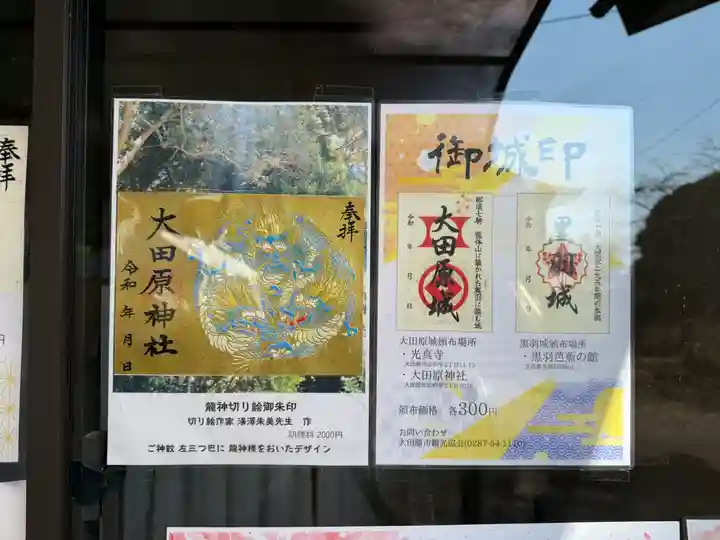 奉拝
奉拝
大田原神社
令和 年 月 日
龍神切り絵御朱印
切り絵作家 湯澤朱美先生 作
初穂料 2000円
ご神紋 左三つ巴に 龍神様をおいたデザイン
御城印
大田原城
令和 年 月 日
黒羽城
大田原城頒布場所
・光真寺
・大田原神社
黒羽城頒布場所
・黒羽芭蕉の館
頒布価格 各300円
お問い合わせ
大田原市観光協会(0287-54-1110)